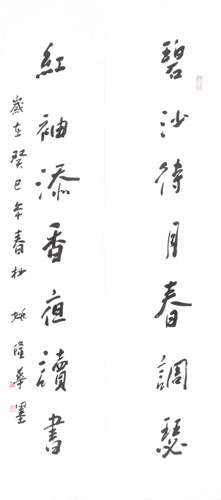 碧沙待月春調瑟
紅袖添香夜讀書
歲在癸巳年春於姚隆華墨